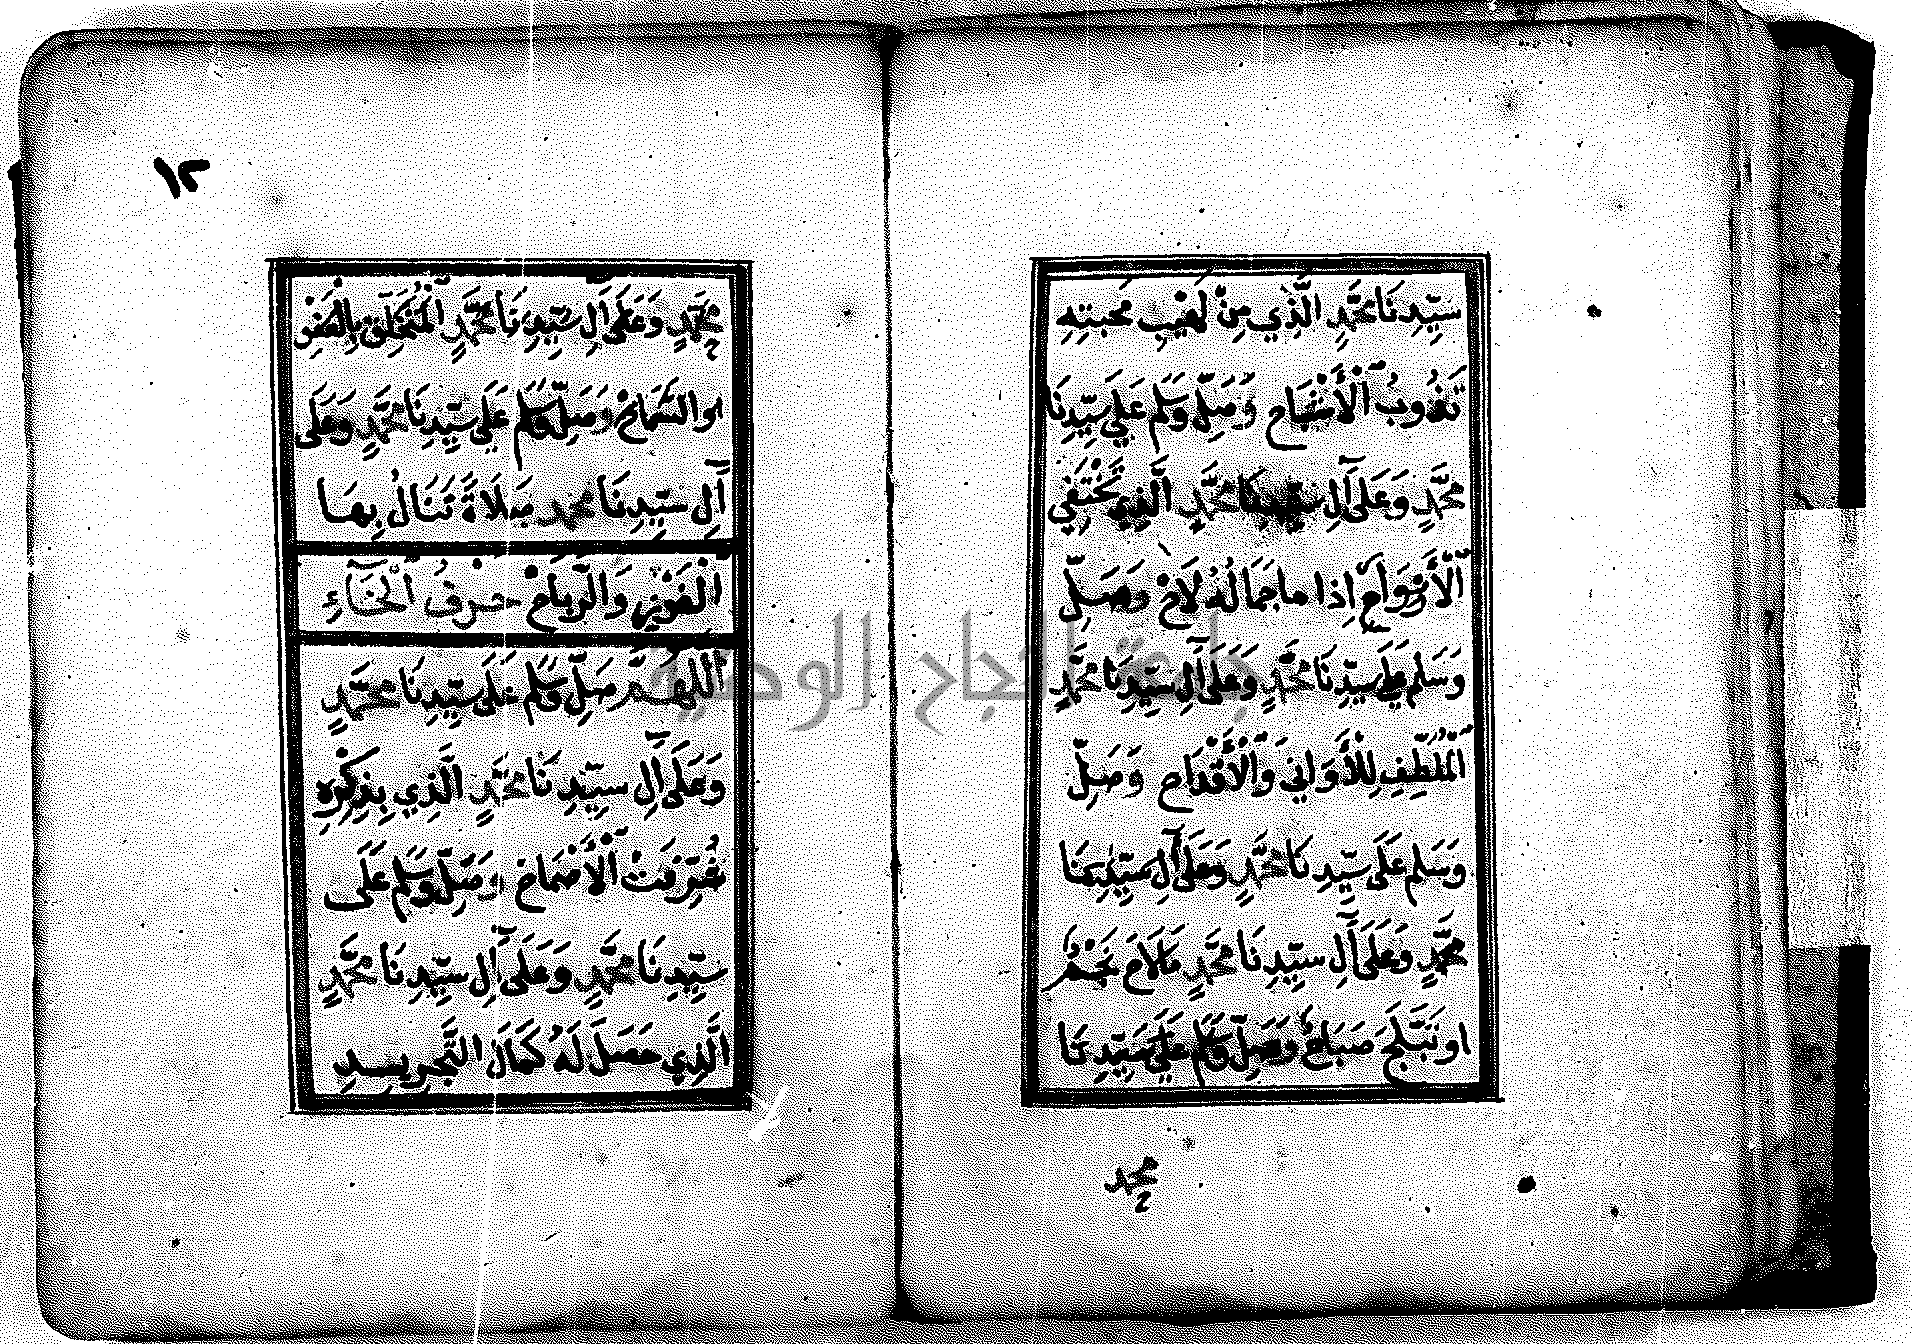 سَيِّدِنَا مُحَمَّدٍ الَّذِي مِنْ لَهِيبِ مَحَبَّتِهِ
تَذُوبُ الْأَشْبَاحِ وَصَلِّ وَسَلِّمْ عَلَى سَيِّدِنَا
مُحَمَّدٍ وَعَلَى آلِ سَيِّدِنَا مُحَمَّدٍ الَّذِي تَحْتَفِي
الْأَرْوَاحِ إِذَا مَا جَمَالُهُ لَاحِ وَصَلِّ
وَسَلِّمْ عَلَى سَيِّدِنَا مُحَمَّدٍ وَعَلَى آلِ سَيِّدِنَا مُحَمَّدٍ
الْمُلَطِّفِ لِلْأَوَانِي وَالْأَقْدَاحِ وَصَلِّ
وَسَلِّمْ عَلَى سَيِّدِنَا مُحَمَّدٍ وَعَلَى آلِ سَيِّدِنَا
مُحَمَّدٍ وَعَلَى آلِ سَيِّدِنَا مُحَمَّدٍ مَا لَاحَ نَجْمٌ
اَو تَبَلَّجَ صَبَاحٌ وَصَلِّ وَسَلِّمْ عَلَى سَيِّدِنَا
محمد
١٢
مُحَمَّدٍ وَعَلَى آلِ سَيِّدِنَا مُحَمَّدٍ الْمُتَخَلِّقِ
وَالسَّمَاحِ وَصَلِّ وَسَلِّمْ عَلَى سَيِّدِنَا مُحَمَّدٍ وَعَلَى
آلِ سَيِّدِنَا مُحَمَّدٍ صَلَاةً تَنَالُ بِهَا
الْفَوْزِ وَالرَّبَاحِ حَرْفُ الْخَآءِ
اللَّهُمَّ صَلِّ وَسَلِّمْ عَلَى سَيِّدِنَا مُحَمَّدٍ
وَعَلَى آلِ سَيِّدِنَا مُحَمَّدٍ الَّذِي بِذِكْرِهِ
شُرِّفَتْ الْأَصْمَاخِ وَصَلِّ وَسَلِّمْ عَلَى
سَيِّدِنَا مُحَمَّدٍ وَعَلَى آلِ سَيِّدِنَا مُحَمَّدٍ
الَّذِي حَصَلَ لَهُ كَمَالُ التَّجْرِيدِ